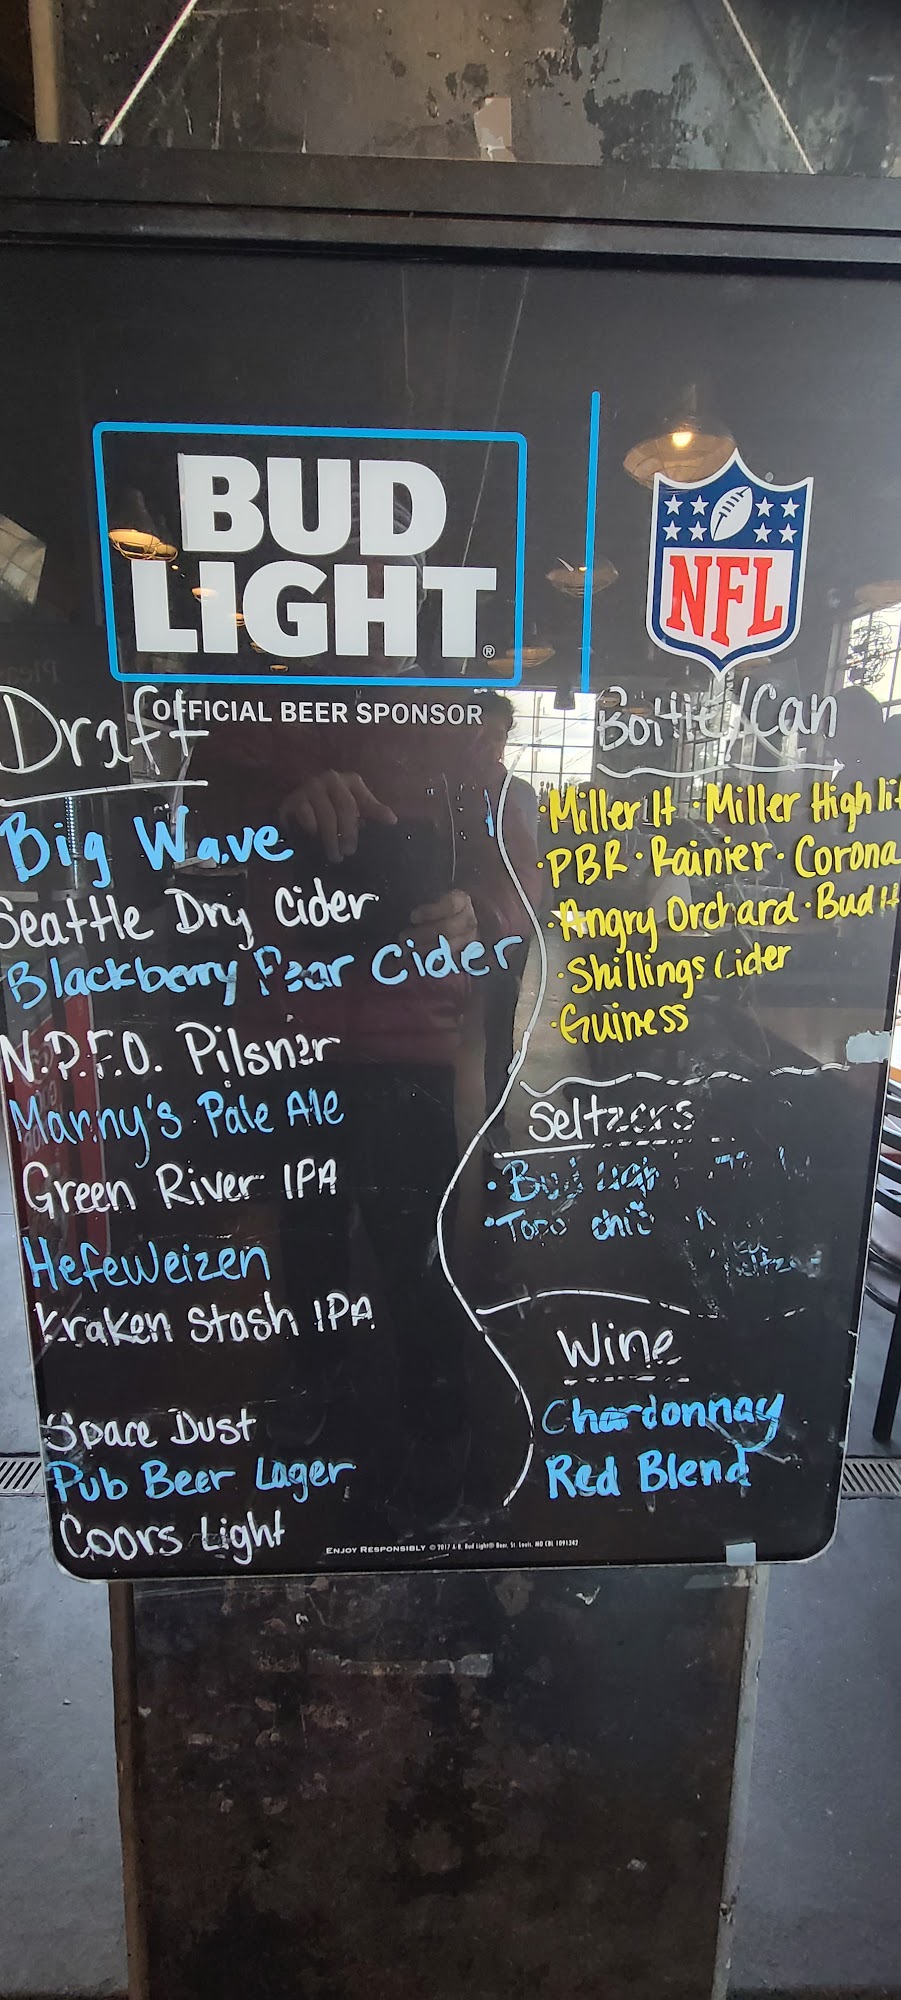 BUD
LIGHT®
NFL
OFFICIAL BEER SPONSOR
Draft
Big Wave
Seattle Dry Cider
Blackberry Pear Cider
N.P.F.O. Pilsner
Manny's Pale Ale
Green River IPA
Hefeweizen
Kraken Stash IPA
Space Dust
Pub Beer Lager
Coors Light
Bottle/Can
· Miller lt · Miller High
· PBR · Rainier · Corona
· Angry Orchard · Bud lt
· Shillings Cider
· Guiness
Seltzers
· Bud
· Topo chi
Wine
Chardonnay
Red Blend
ENJOY RESPONSIBLY © 2017 A-B, Bud Light® Beer, St. Louis, MO